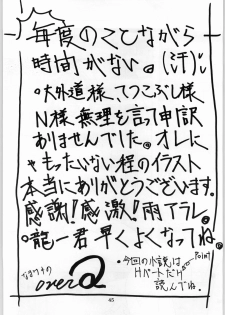 毎度のことながら
時間がない。(汗)
○大外道様、てつこぶし様
N様、無理を言って申訳
ありませんでした。オレに
ゃもったいない程のイラスト
本当にありがとうございます。
感謝!感激!雨アラレ。
○龍一君早くよくなってね。
なまけもの
over
・今回の小説は
POINT
Hパートだけ
読んでね。
45